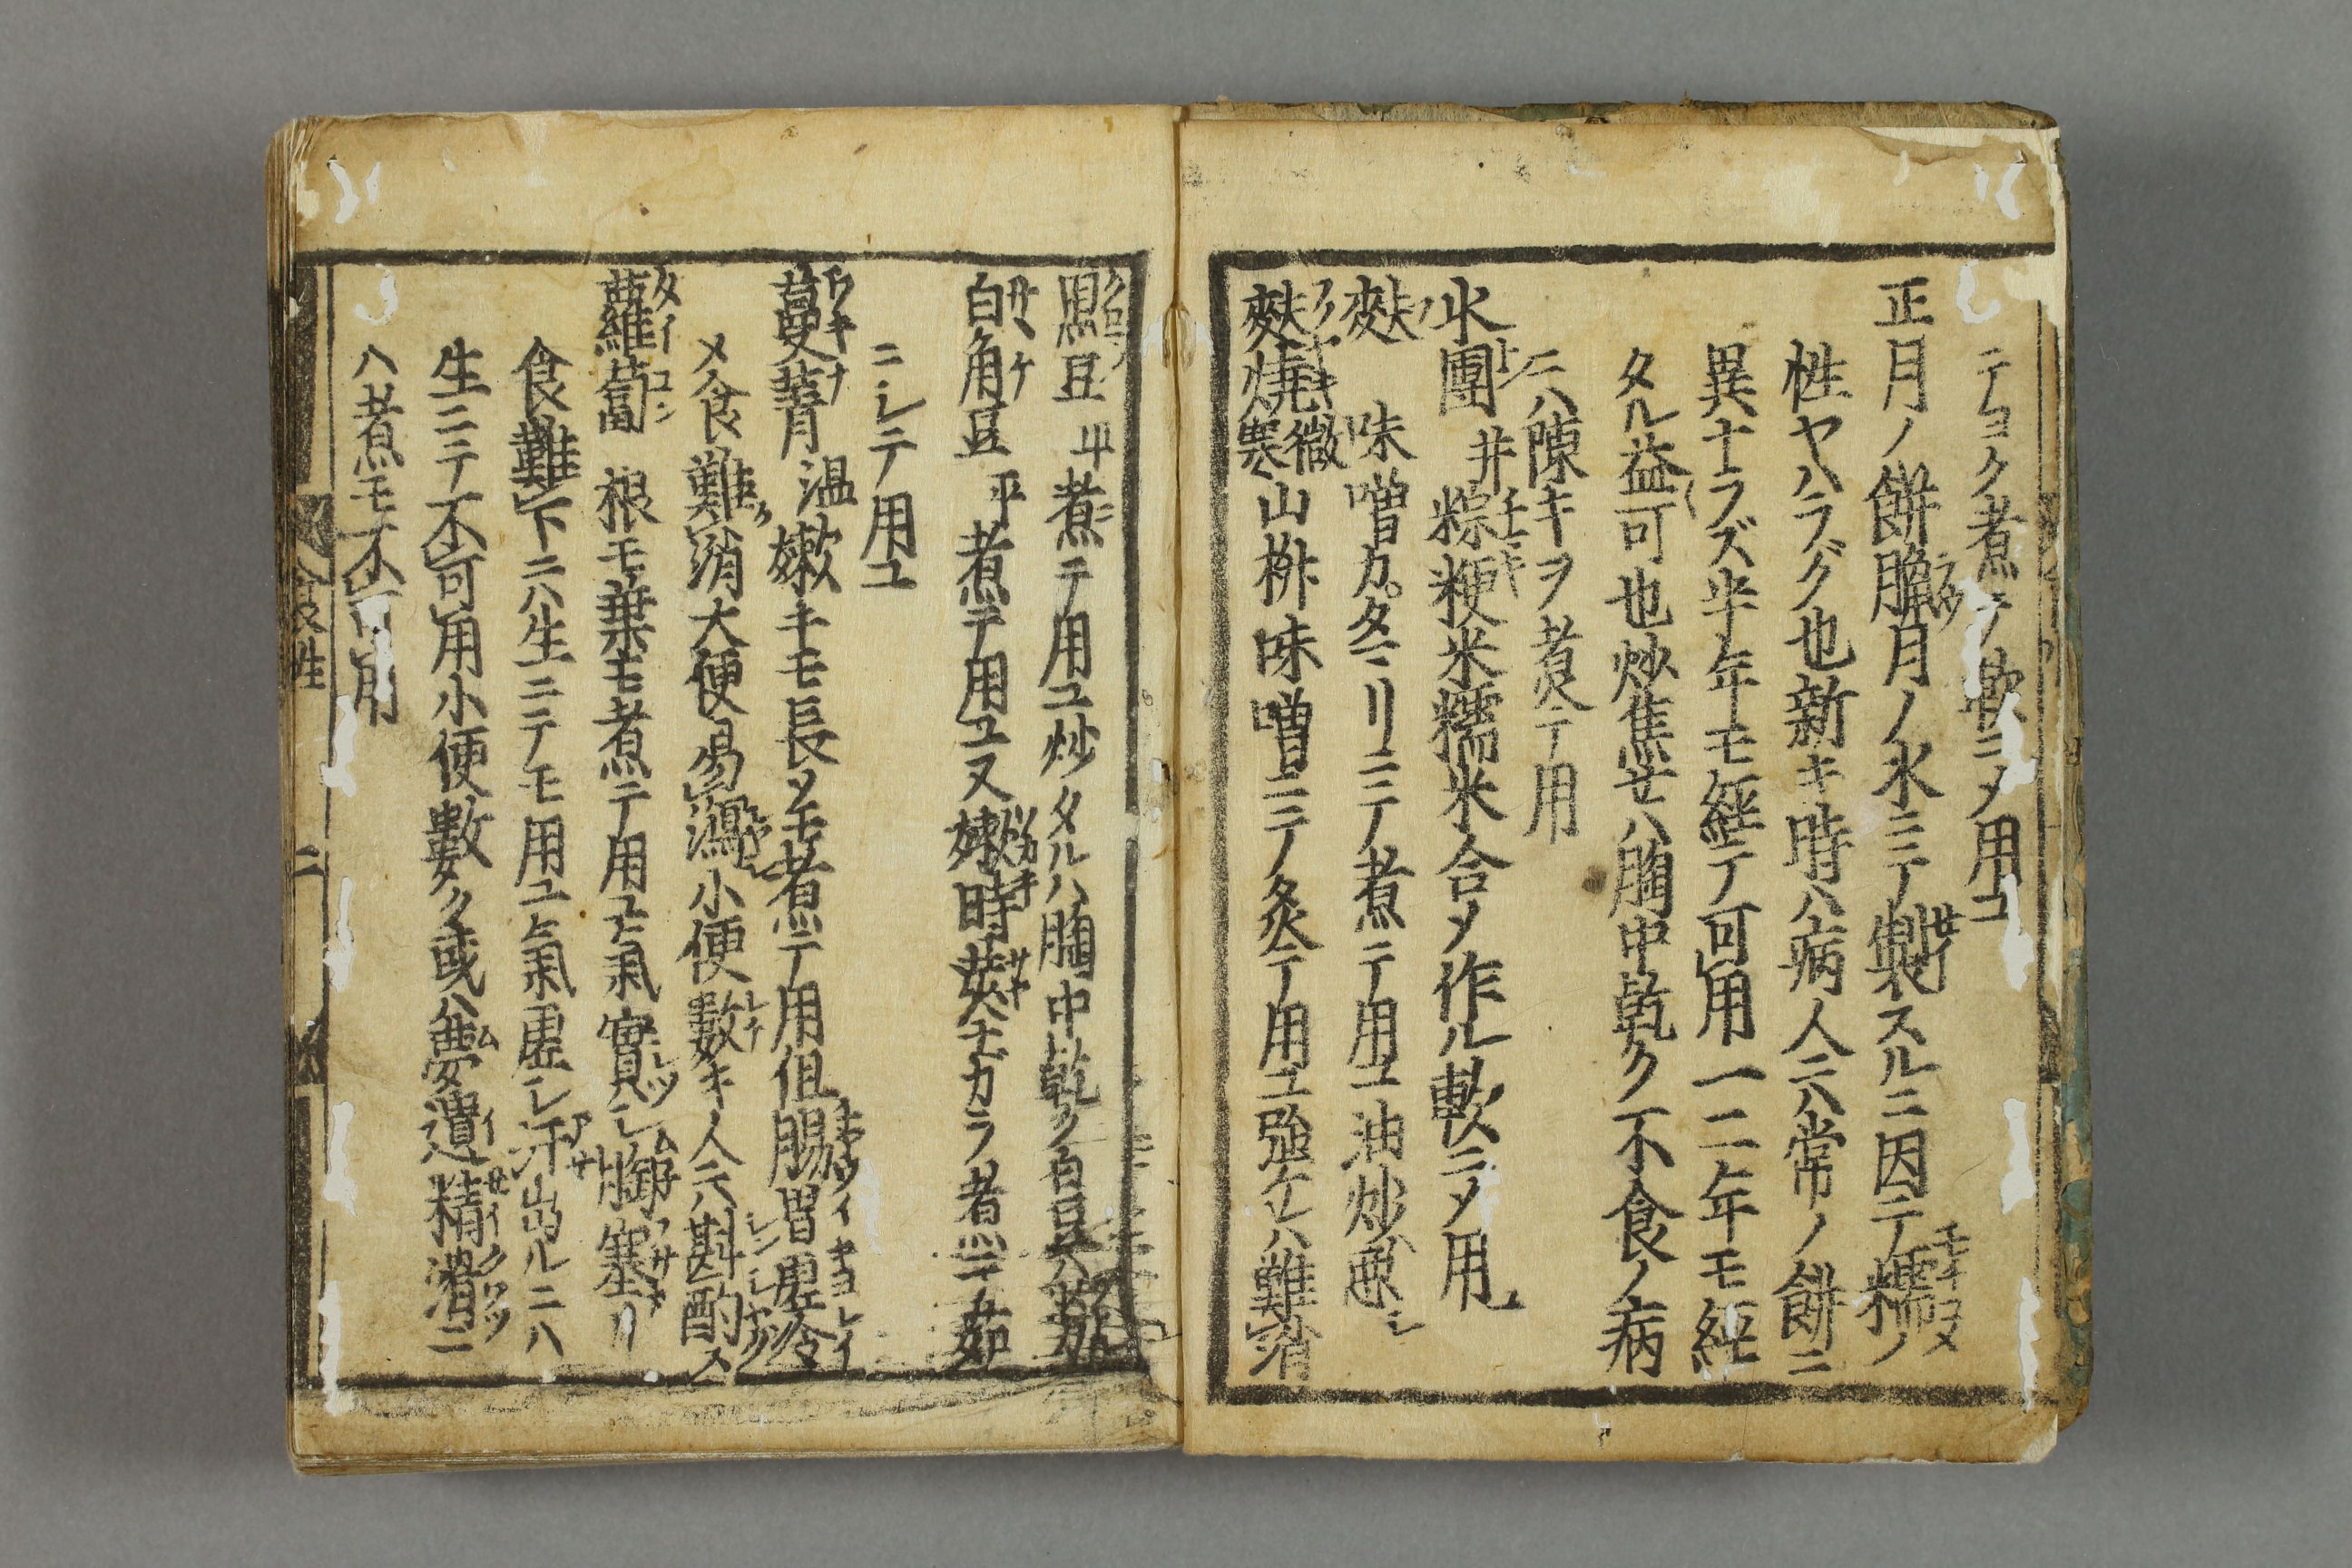 テヨク煮テ軟ニメ用ユ
正月ノ餅臈月ノ水ニテ製スルニ因テ糯ノ
性ヤハラグ也新キ時ハ病人ニハ常ノ餅ニ
異ナラズ半年モ經テ可用一二年モ經
タル益可也炒焦セハ胸中乾ク不食ノ病
ニハ陳キヲ煮テ用
水團 并粽粳米糯米合メ作ル軟ニメ用
麩 味噌カタミリニテ煮テ用ユ油炒悪シ
麩燒 微寒 山椒味噌ニテ炙テ用ユ強ケレハ難消
黒豆 平 煮テ用ユ炒タルハ胸中乾ク白豆
白角豆 平 煮テ用ユ又嫩時莢トモカラ煮テ茹
ニシテ用ユ
蔓菁 温 嫩キモ長ソモ煮テ用但腸胃虚冷
メ食難消大便易瀉小便數キ人ニハ斟酌ス
蘿蔔 根モ葉モ煮テ用ユ氣實シ胸塞リ
食難下ニハ生ニテモ用ユ氣虚シ汗出ルニハ
生ニテ不可用小便數ク或ハ夢遺精滑ニ
ハ煮モ不可用
食性
二